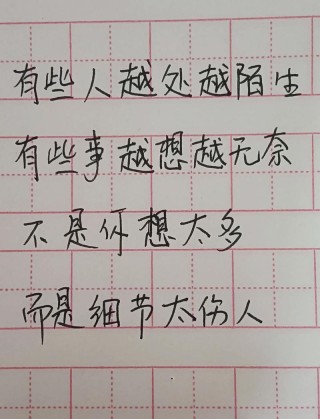 有些人越处越陌生
有些事越想越无奈
不是你想太多
而是细节太伤人